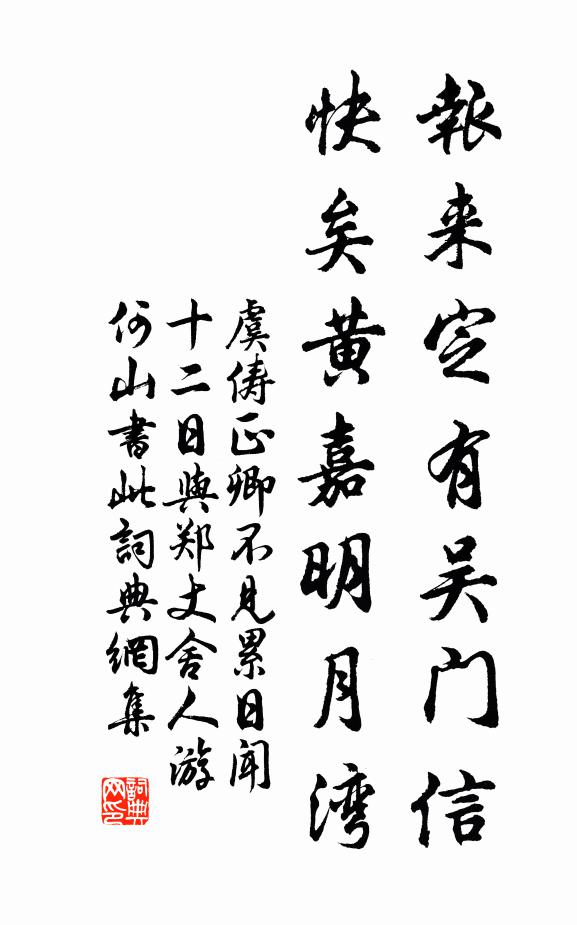 報来定有吴门信
快矣黄嘉明月湾
虞俦正卿不见累日闻
十二日與郑丈舍人游
何山書此詞典網集
詞典网印